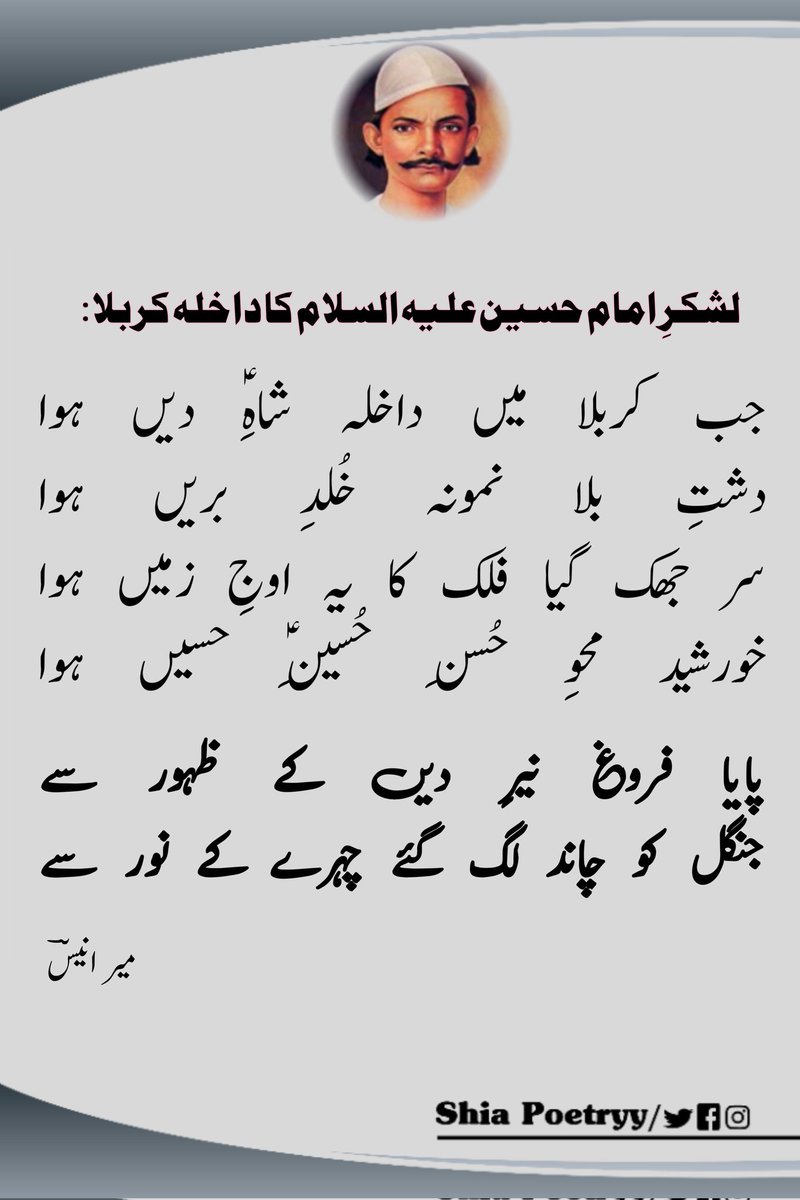 لشکرِ امام حسین علیہ السلام کا داخلہ کربلا:
جب کربلا میں داخلہ شاہِؑ دیں ہوا
دشتِ بلا نمونہ خُلدِ بریں ہوا
سر جھک گیا فلک کا یہ اوجِ زمیں ہوا
خورشید محوِ حُسنِ حُسینِؑ حسیں ہوا
پایا فروغ نیرِ دیں کے ظہور سے
جنگل کو چاند لگ گئے چہرے کے نور سے
میر انیسؔ
Shia Poetryy/